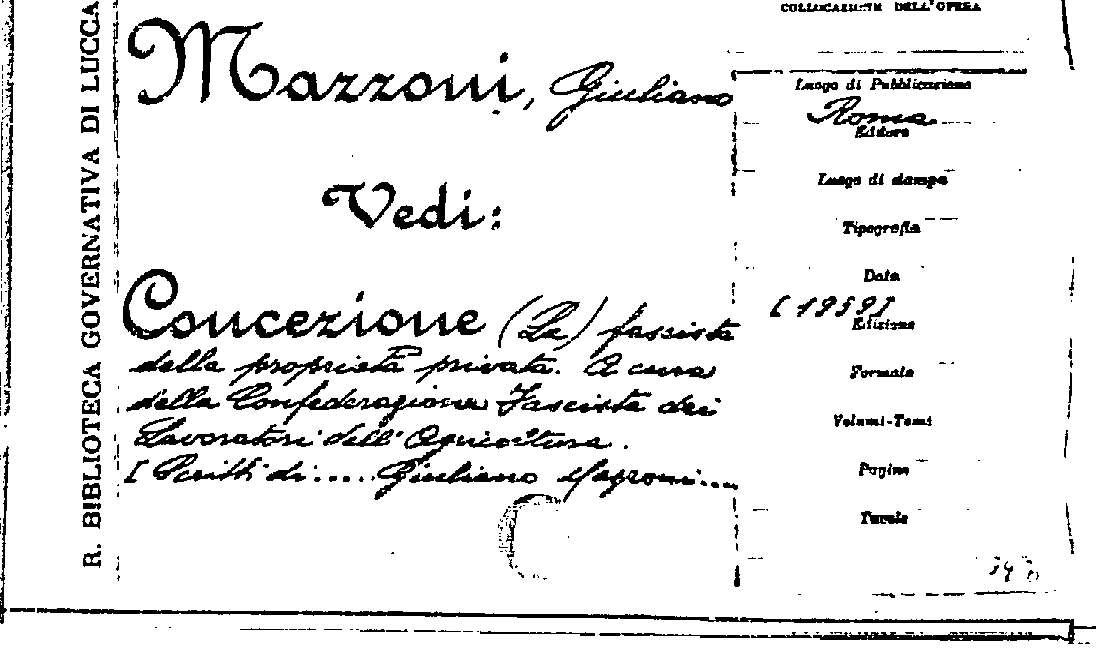 R. BIBLIOTECA GOVERNATIVA DI LUCCA
Mazzoni, Giuliano
Vedi:
Concezione (La) fascista
della proprietà privata. A cura
della Confederazione Fascista dei
Lavoratori dell'Agricoltura.
[Scritti di.... Giuliano Mazzoni....
COLLOCAZIONE DELL'OPERA
Luogo di Pubblicazione
Roma
Editore
Luogo di stampa
Tipografia
Data
[1939]
Edizione
Formato
Volumi-Tomi
Pagine
Tavole